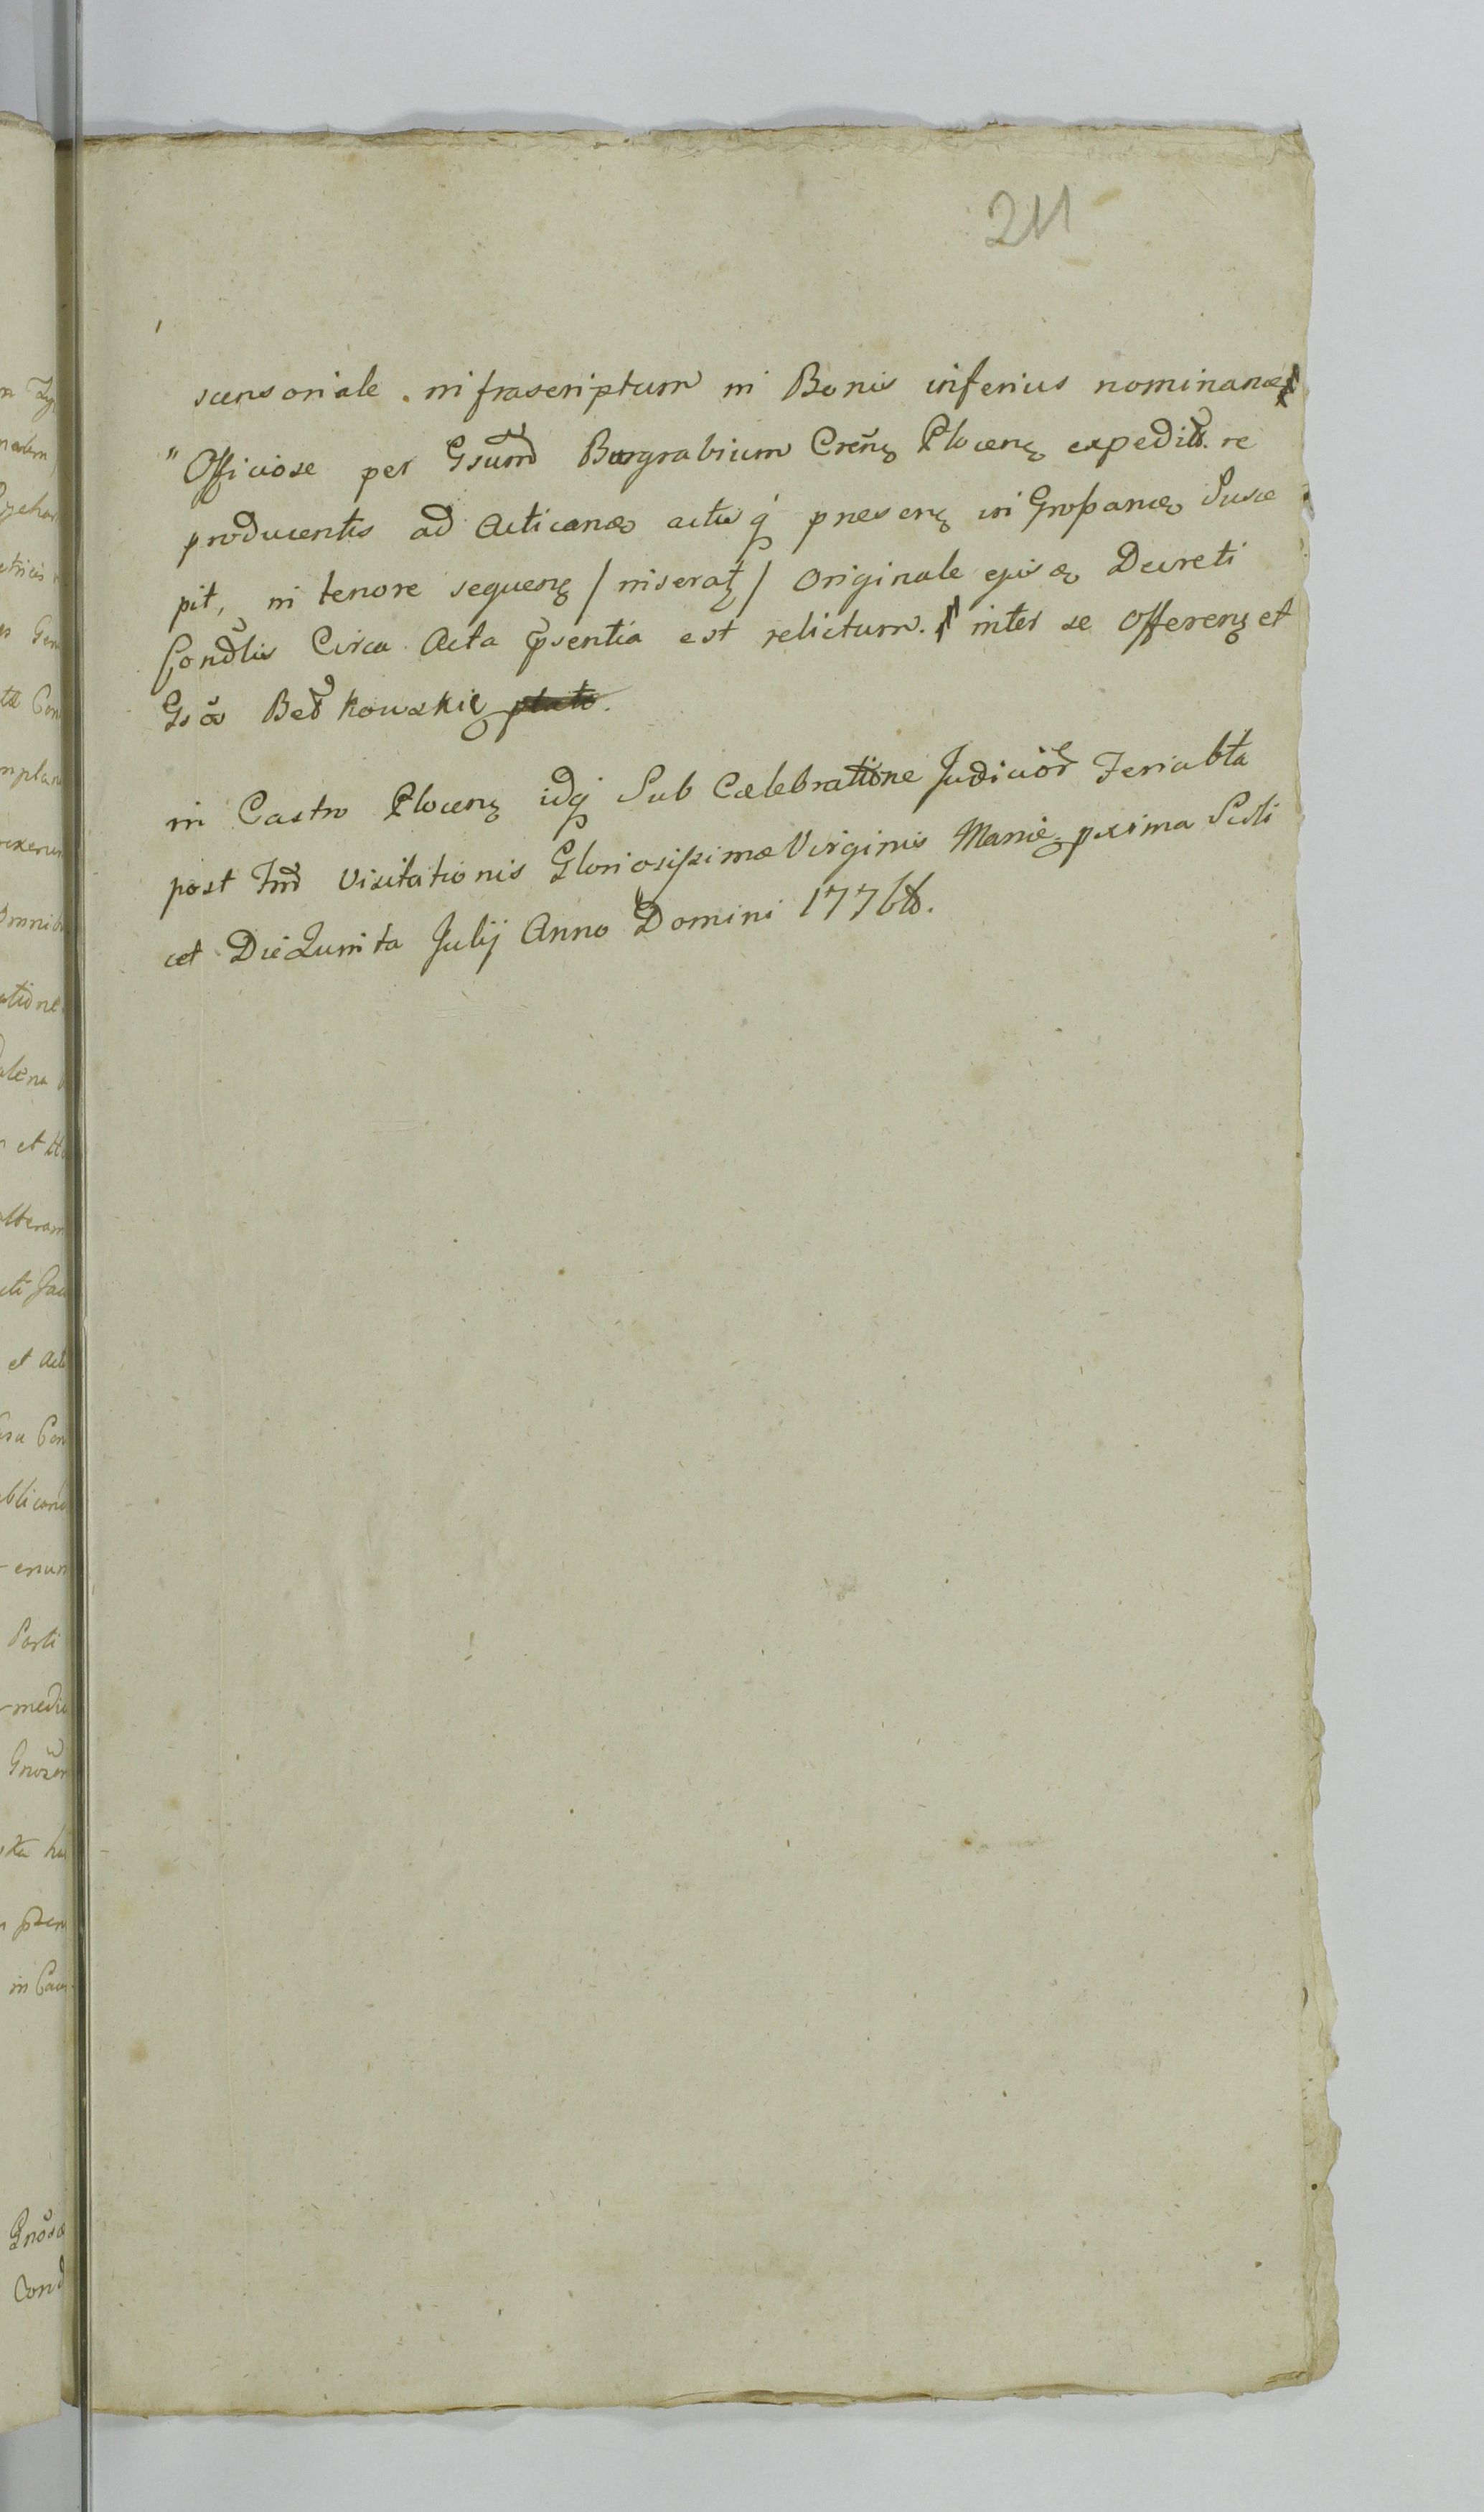 211
scensoriale . infrascriptum in Bonis inferius nominan
" Officiose per Gsum Burgrabium Cren Plocen expedit. re
producentis ad Actican actisq presen in Grossan Susce
pit, in tenore sequen / inserat / Originale ejus Decreti
Condlis Circa Acta psentia est relictum. inter se Offeren et
Gsos Bedkowskie
in Castro Plocen idq Sub Caelebratione Judicior Feria 6ta
post Fm Visitationis Gloriosissimae Virginis Marie pxima Scili
cet Die Quinta Julij Anno Domini 1776to.